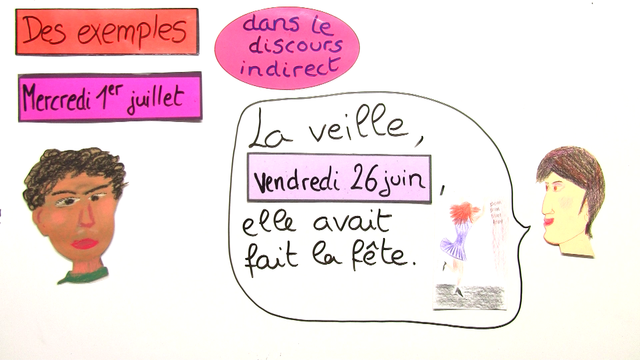 Des exemples
dans le
discours
indirect
Mercredi 1er juillet
La veille,
vendredi 26 juin,
elle avait
fait la fête.